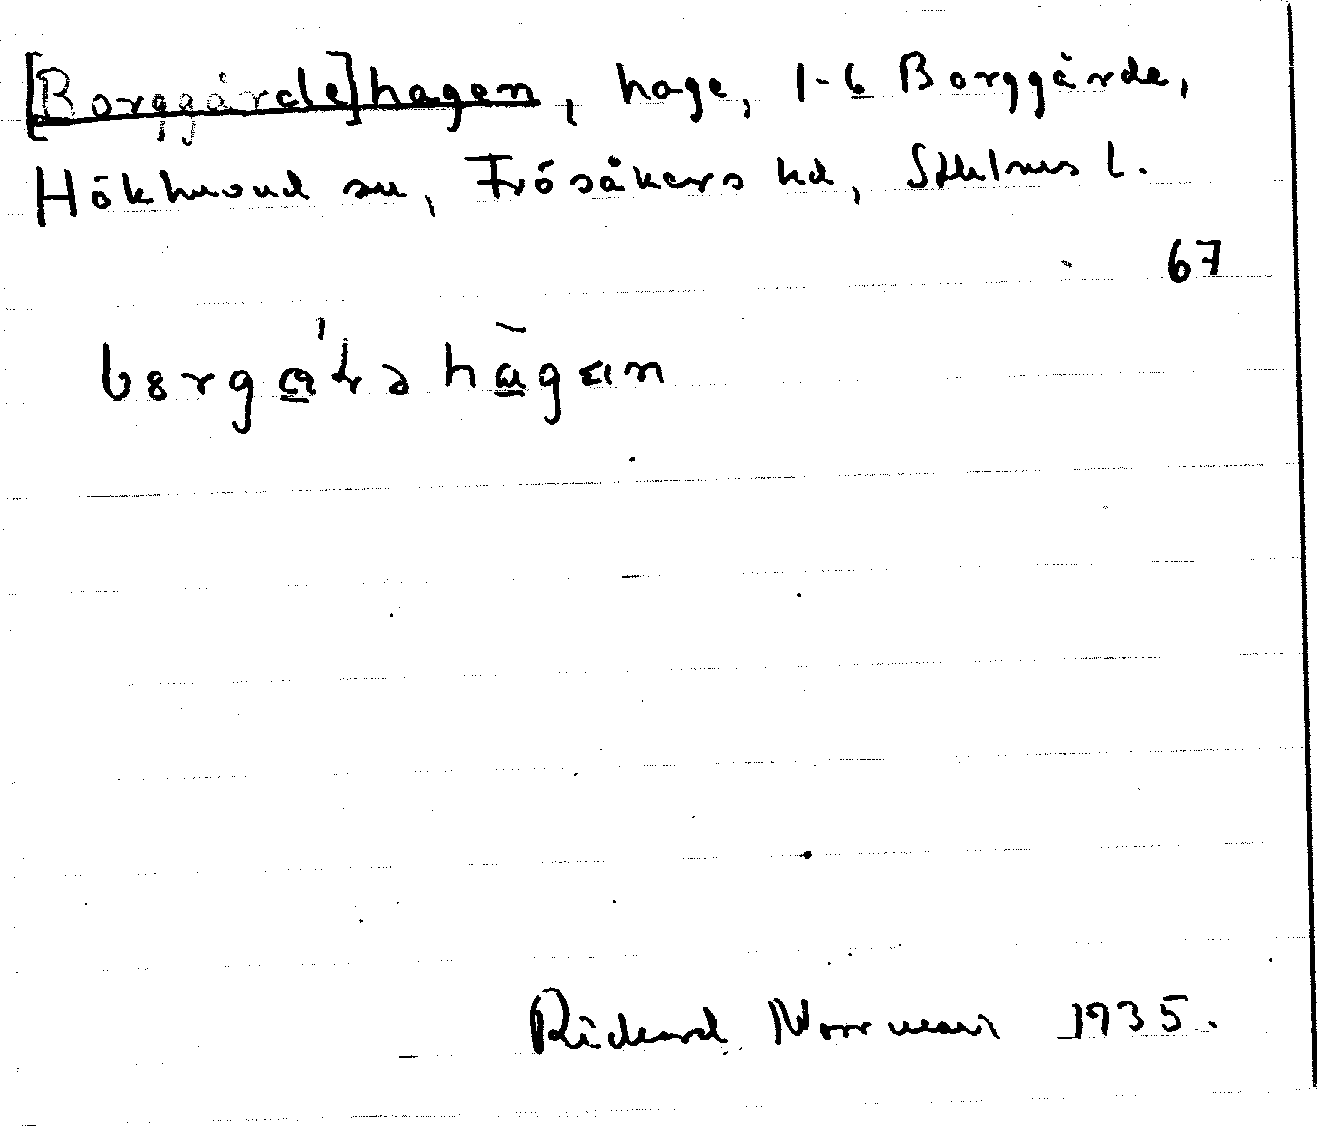 [Borggärde]hagen, hage, 1-6 Borggärde,
Hökhuvud sn, Frösåkers hd, Sthlms l.
67
Richard Norrman 1935.